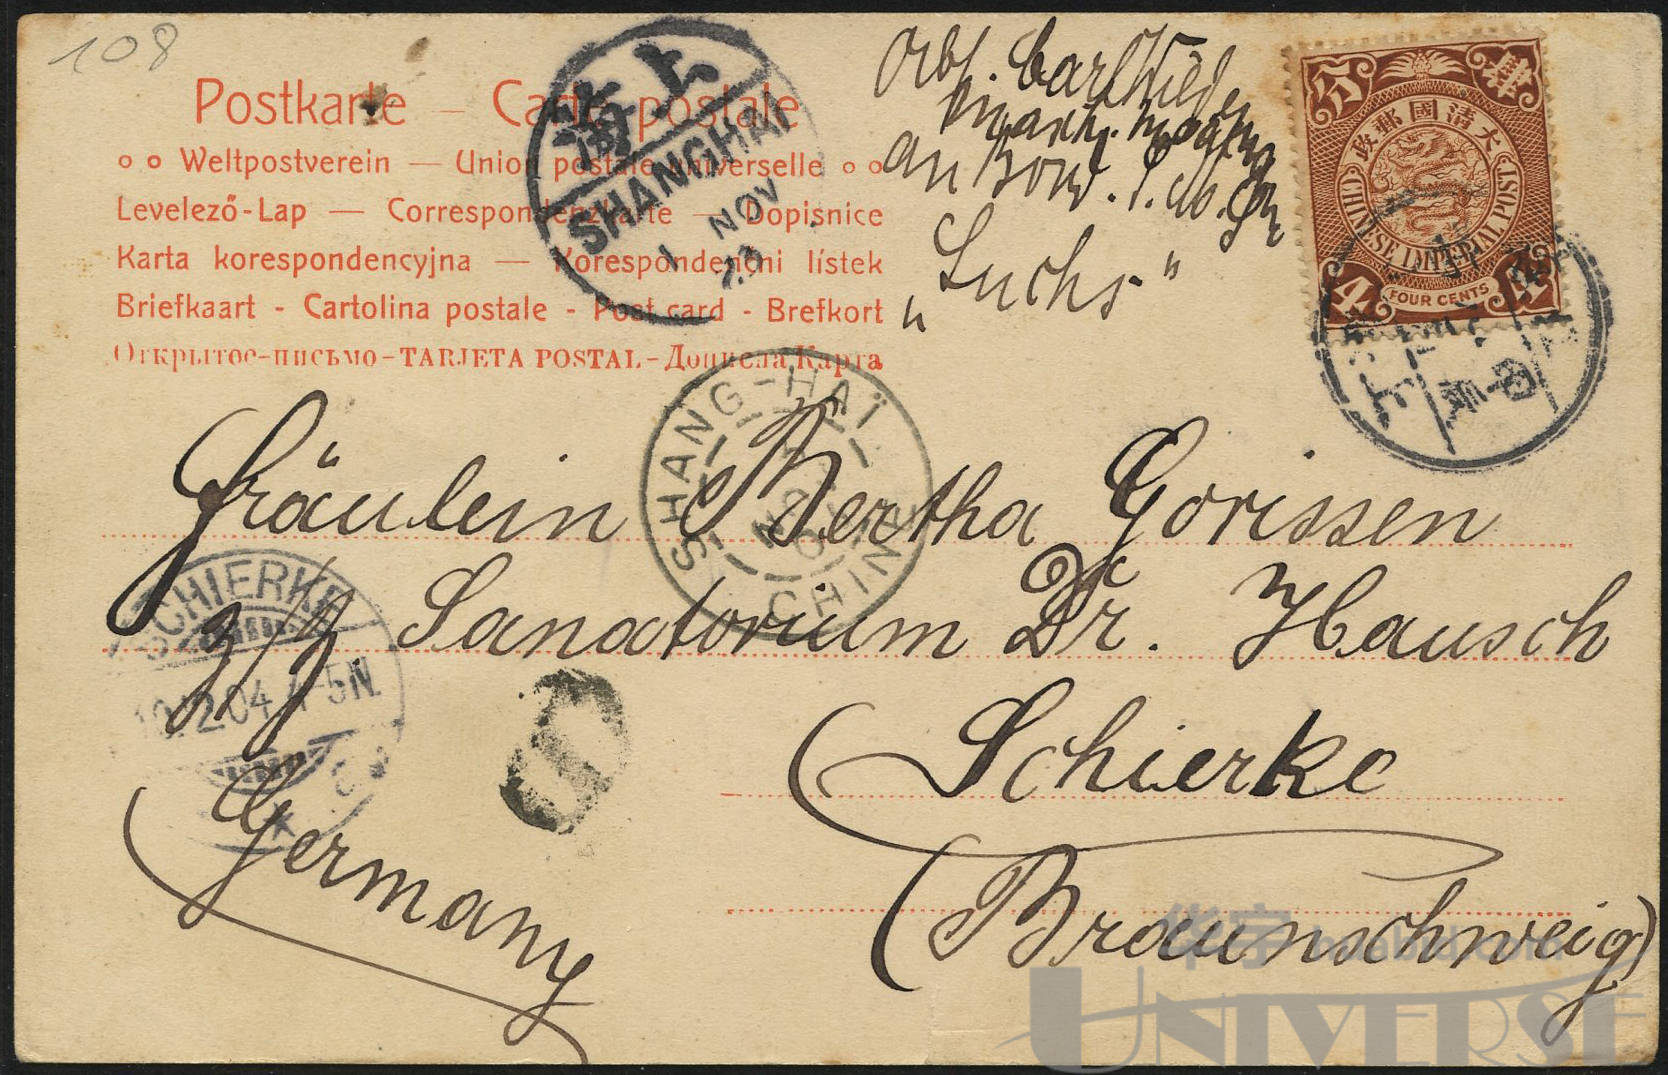 108
Postkarte – Carte postale
Weltpostverein — Union postale universelle
Levelező-Lap — Correspondenzkarte — Dopisnice
Karta korespondencyjna — Korespondenčni lístek
Briefkaart - Cartolina postale - Post card - Brefkort
Открытое-письмо-TARJETA POSTAL-Дописна Карта
海上
SHANGHAI
1 NOV
Abs. Carl
an Bord. S. M. S.
„Luchs"
大清國郵政
CHINESE IMPERIAL POST
4
FOUR CENTS
SHANG-HAÏ
CHINE
Fräulein Bertha Gorissen
z/Z Sanatorium Dr. Hausch
Schierke
(Braunschweig)
Germany
SCHIERKE
12.04. 4-5N.
华宇
UNIVERSE